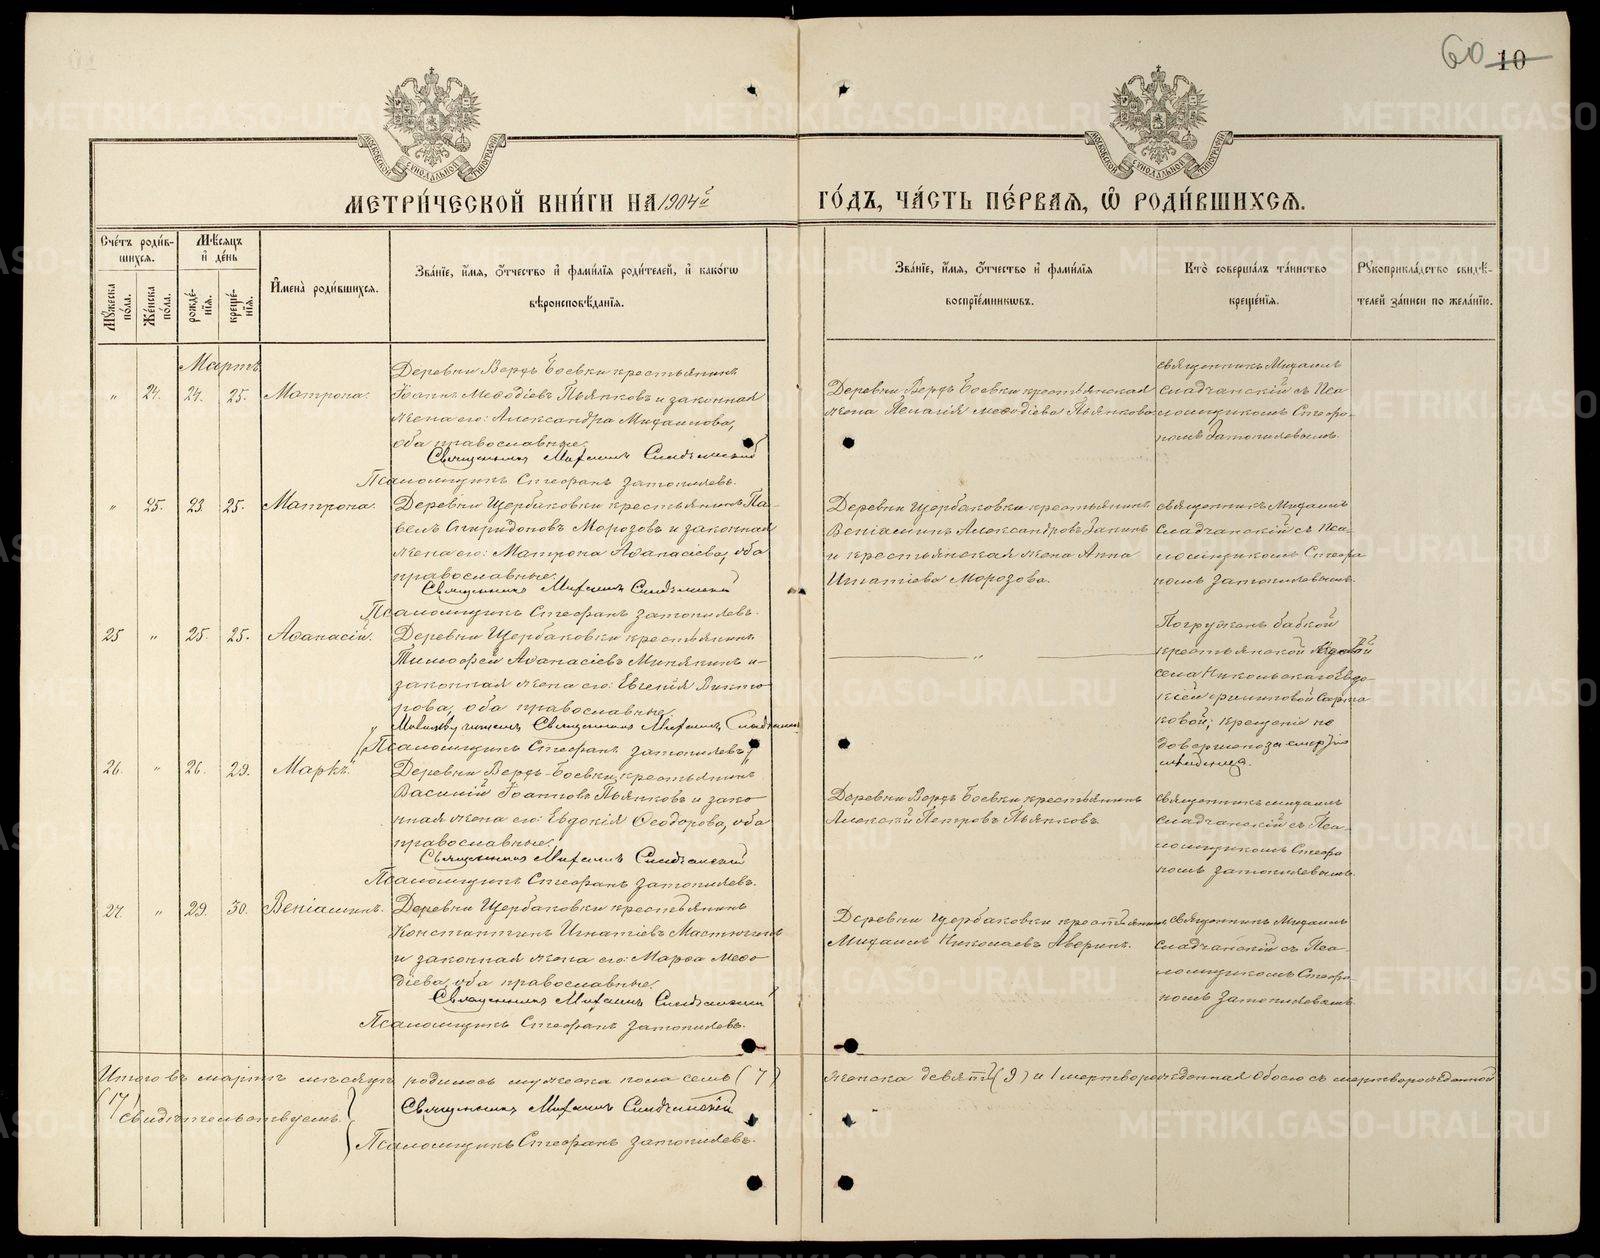 60 10
МЕТРИ́ЧЕСКОЙ КНИ́ГИ НА 1904й ГО́ДЪ, ЧА́СТЬ ПЕ́РВАЯ, Ѽ РОДИ́ВШИХСЯ.
Сче́тъ роди́в-
шихся.
Мѣ́сяцъ
и҆ де́нь
Мꙋ́жеска по́ла.
Же́нска по́ла.
рожде́-
нїя.
креще́-
нїя.
И҆мена̀ роди́вшихся.
Зва́нїе, и҆́мя, ѻ҆́тчество и҆ фами́лїя роди́телей, и҆ како́гѡ
вѣроисповѣ́данїя.
Зва́нїе, и҆́мя, ѻ҆́тчество и҆ фами́лїя
воспрїе́мникѡвъ.
Кто̀ соверша́лъ та́инство
креще́нїя.
Рꙋкоприкла́дство свидѣ́-
телей за́писи по жела́нїю.
Мартъ
„ 24. 24. 25. Матрона.
Деревни Верхъ Боевки крестьянинъ
Іоаннъ Меѳодіевъ Пьянковъ и законная
жена его: Александра Михаилова,
оба православные.
Священникъ Михаилъ
Псаломщикъ Стефанъ Затопляевъ.
Деревни Верхъ Боевки крестьянская
жена Пелагія Меѳодіева Пьянкова
священникъ Михаилъ
съ Пса-
ломщикомъ Стефа-
номъ Затопляевымъ.
„ 25. 23. 25. Матрона.
Деревни Щербаковки крестьянинъ Па-
велъ Спиридоновъ Морозовъ и законная
жена его: Матрона Аѳанасіева, оба
православные.
Священникъ Михаилъ
Псаломщикъ Стефанъ Затопляевъ.
Деревни Щербаковки крестьянинъ
Веніаминъ Александровъ
и крестьянская жена Анна
Игнатіева Морозова.
священникъ Михаилъ
съ Пса-
ломщикомъ Стефа
номъ Затопляевымъ.
25 „ 25. 25. Аѳанасій.
Деревни Щербаковки крестьянинъ
Тимофей Аѳанасіевъ и
законная жена его: Евгенія Викто
рова, оба православные.
Священникъ Михаилъ
Псаломщикъ Стефанъ Затопляевъ.
„
Погружонъ бабкой
крестьянской вдовой
села Никольскаго Евдо-
кіей Филипповой
ковой; крещеніе не
довершено за смертію
младенца.
26. „ 26. 29. Маркъ.
Деревни Верхъ-Боевки крестьянинъ
Василій Іоанновъ Пьянковъ и зако
нная жена его: Евдокія Ѳеодорова, оба
православные.
Священникъ Михаилъ
Псаломщикъ Стефанъ Затопляевъ.
Деревни Верхъ Боевки крестьянинъ
Алексій Петровъ Пьянковъ
священникъ Михаилъ
съ Пса-
ломщикомъ Стефа
номъ Затопляевымъ.
27. „ 29. 30. Веніаминъ.
Деревни Щербаковки крестьянинъ
Константинъ Игнатіевъ
и законная жена его: Марѳа Меѳо
діева, оба православные.
Священникъ Михаилъ
Псаломщикъ Стефанъ Затопляевъ.
Деревни Щербаковки крестьянинъ
Михаилъ Николаевъ Аверинъ.
священникъ Михаилъ
съ Пса-
ломщикомъ Стефа
номъ Затопляевымъ.
Итого въ мартѣ мѣсяцѣ родилось мужеска пола семь (7) женска девять (9) и 1 мертворожденная Обоего съ мертворожденной
(17)
Свидѣтельствуемъ:
Священникъ Михаилъ
Псаломщикъ Стефанъ Затопляевъ.
METRIKI.GASO-URAL.RU